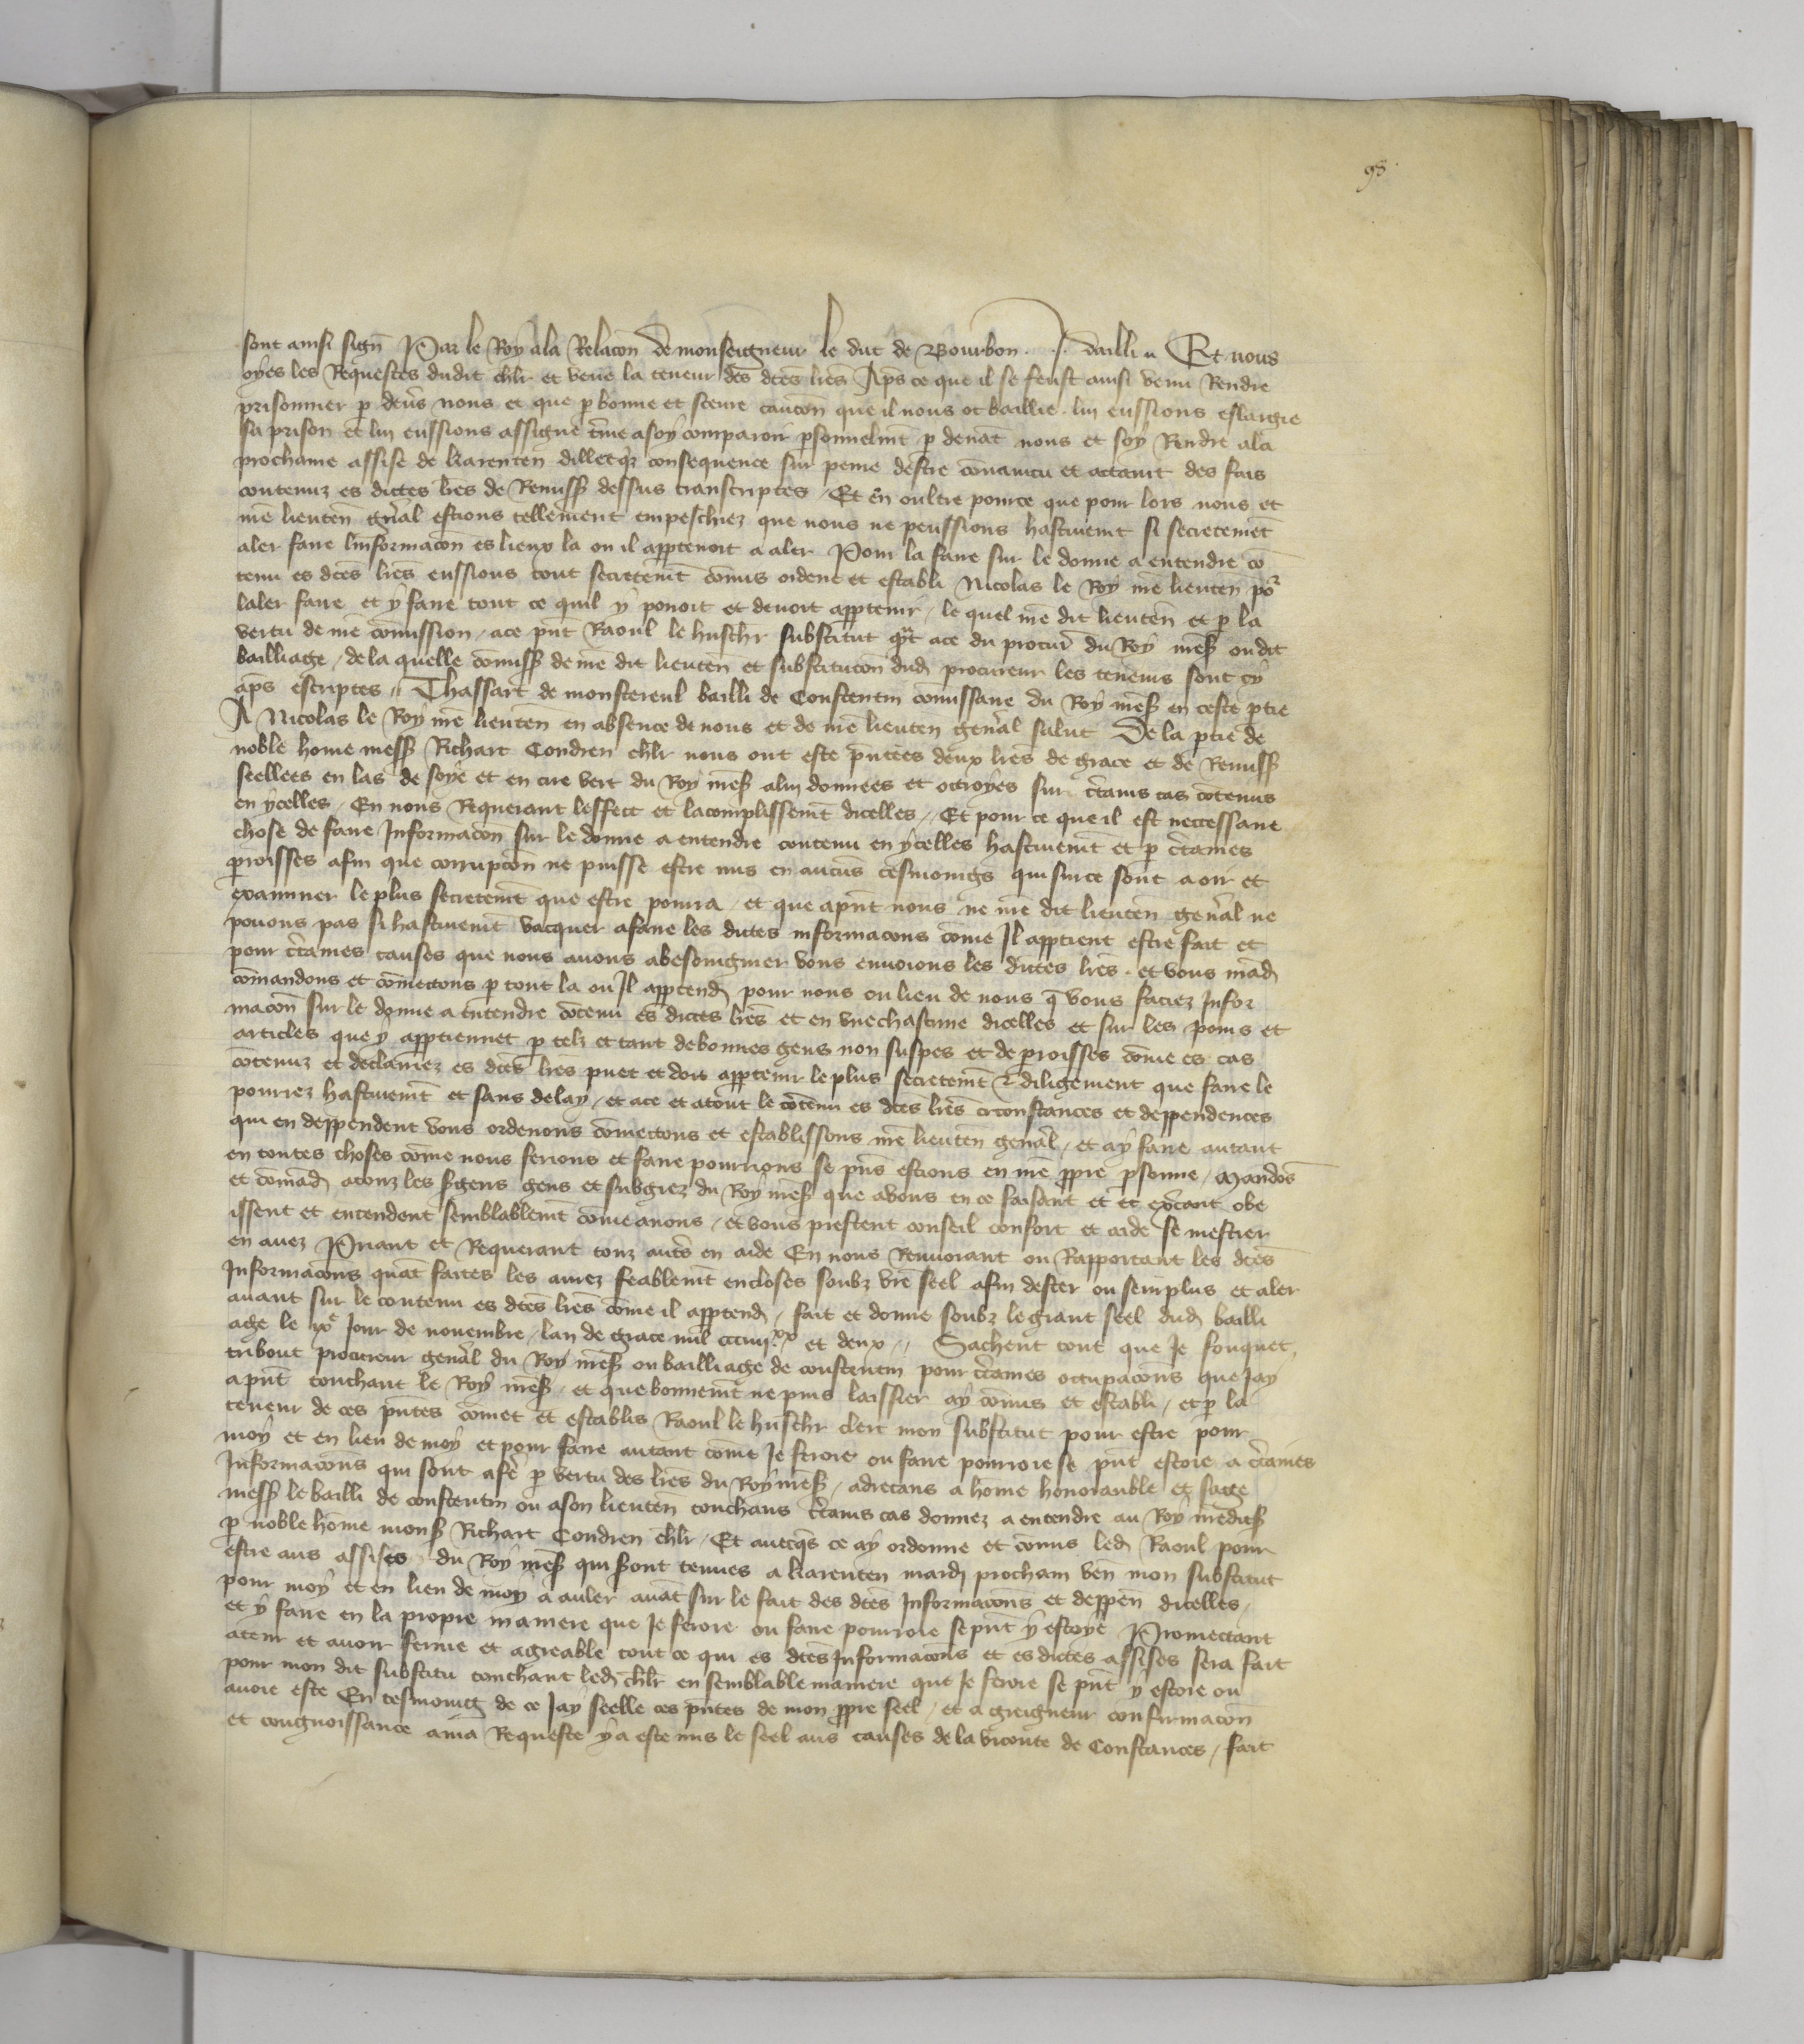 98
sont ainsi sign̄ Par le Roy a la Relacōn de monseigneur le duc de Bourbon . J. dailli .. Et nous
oyes les Requestes dudit chlr et veue la teneur des dc̄es lr̄es Apr̄s ce que il se feust ainsi venu Rendre
prisonnier p deuers nous et que p bonne et seure caucōn que il nous ot baillie . lui eussions eslargie
sa prison et lui eussions assigne t̄me a soy comparoir psonnelmt̄ p deuāt nous et soy Rendre a la
prochaine assise de karenten dillecq̄s consequence sur peine destre cōuaincu et actaint des fais
contenuz es dictes lr̄es de Remiss dessus transcriptes / Et en oultre pource que pour lors nous et
nr̄e lieuten gn̄al estions tellement empeschiez que nous ne peussions hastiuemt̄ si secretemēt
aler faire linformacōn es lieux la ou il apptenoit a aler Pour la faire sur le donne a entendre cō
tenu es dc̄es lr̄es eussions tout secretemt̄ cōmis ordene et establi Nicolas le Roy nr̄e lieuten pōr
laler faire et y faire tout ce quil y pouoit et deuoit apptenir / le quel nr̄e dit lieuten et p la
vertu de nr̄e cōmission / a ce pn̄t Raoul le huschr̄ substitut qn̄t a ce du procur̄ du Roy nr̄es ou dit
bailliage / de la quelle cōmiss de nr̄e dit lieuten et substitucōn dud procureur les teneurs sont cy
apr̄s escriptes // Thassart de monstereul bailli de Constentin cōmissaire du Roy nr̄es en ceste ptie
A Nicolas le Roy nr̄e lieuten en absence de nous et de nr̄e lieuten genr̄al salut De la ptie de
noble home mess Richart Condren chlr nous ont este pn̄tees deux lr̄es de grace et de Remiss
seellees en las de soye et en cire vert du Roy nr̄es a lui donnees et octroyes sur c̄tains cas cōtenus
en ycelles / En nous Requerant leffect et lacomplissemt̄ dicelles // Et pour ce que il est neccessaire
chose de faire Informacōn sur le donne a entendre contenu en ycelles hastiuemt̄ et p c̄taines
proisses afin que corrupcōn ne puisse estre mis en aucuns tesmoings qui sur ce sont a oir et
examiner le plus secretemt̄ que estre pourra / et que apn̄t nous ne nr̄e dit lieuten genr̄al ne
pouons pas si hastiuemt̄ vacquer a faire les dictes informacōns cōme Il apptient estre fait et
pour c̄taines causes que nous auons a besoingnier vous enuoions les dictes lr̄es . et vous mād
cōmandons et cōmectons p tout la ou Il apptend pour nous ou lieu de nous q̄ vous faciez Infor
macōn sur le donne a entendre cōtenu es dictes lr̄es et en vne chascune dicelles et sur les poins et
articles que y apptiennet p telz et tant de bonnes gens non suspes et de proisses cōme es cas
cōtenuz et declairez es dc̄es lr̄es puet et doit apptenir le plus secretemt̄ & diligement que faire le
pourrez hastiuemt̄ et sans delay / et a ce et a tout le cōtenu es dc̄es lr̄es circonstances et deppendences
qui en deppendent vous ordenons cōmectons et establissons nr̄e lieuten genr̄al / et a y faire autant
en toutes choses cōme nous ferions et faire pourrions se pn̄s estions en nr̄e ppre psonne / Mandōs
et cōmād a touz les sgens gens et subgiez du Roy nr̄es que a vous en ce faisant et exc̄ant obe
issent et entendent semblablemt̄ cōme a nous / et vous prestent conseil confort et aide se mestier
en auez Priant et Requerant touz autr̄s en aide En nous Renuoiant ou Rapportant les dc̄es
Informacōns quāt faites les aurez feablemt̄ encloses soubz vr̄e seel afin dester ou seurplus et aler
auant sur le contenu es dc̄es lr̄es cōme il apptend / fait et donne soubz le grant seel dud bailli
age le ixe Jour de nouembre / lan de grace mil ccciiiixx et deux // Sachent tout que Je fouquet
tribout procureur genr̄al du Roy nr̄es ou bailliage de constentin pour c̄taines occupacōns que Jay
apn̄t touchant le Roy nr̄es / et que bonnemt̄ ne puis laissier ay cōmis et establi / et p la
teneur de ces pn̄tes cōmet et establis Raoul le huschr̄ clerc mon substitut pour estre pour
moy et en lieu de moy et pour faire autant cōme Je feroie ou faire pourroie se pn̄t estoie a c̄taines
Informacōns qui sont a fer̄ p vertu des lr̄es du Roy nr̄es / adrecans a home honorauble et sage
mess le bailli de constentin ou a son lieuten touchans c̄tains cas donnez a entendre au Roy nr̄edits
p noble hōme mons Richart Condren chlr / Et auecq̄s ce ay ordonne et cōmis led Raoul pour
estre aus assises du Roy nr̄es qui sont tenues a karenten mardi prochain ven mon substitut
pour moy et en lieu de moy a auler auāt sur le fait des dc̄es Informacōns et deppen dicelles /
et y faire en la propre maniere que Je feroie ou faire pourroie se pn̄t y estoye Promectant
a tenir et auoir ferme et agreable tout ce qui es dc̄es Informacōns et es dictes assises sera fait
pour mon dit substitu touchant led chlr en semblable maniere que Je feroie se pn̄t y estoie ou
auoie este En tesmoing de ce Jay seelle ces pn̄tes de mon ppre seel / et a greigneur confirmacōn
et congnoissance a ma Requeste y a este mis le seel aus causes de la viconte de Constances / fait